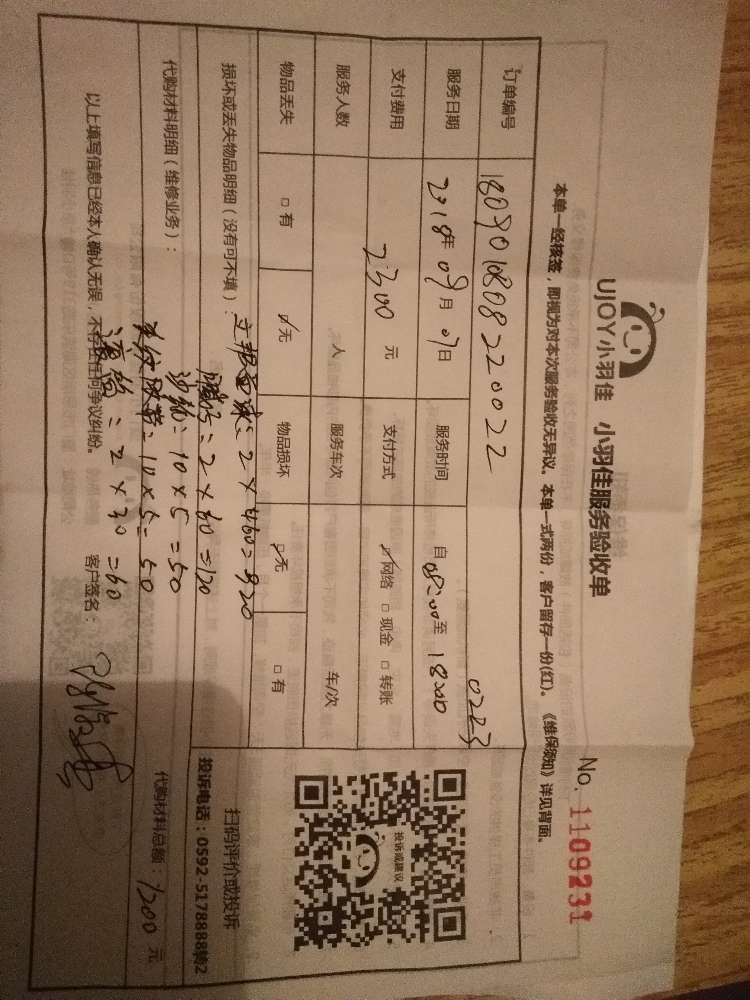 UJOY小羽佳 小羽佳服务验收单
No. 1109231
本单一经核签，即视为对本次服务验收无异议。本单一式两份，客户留存一份(红)。《维保须知》详见背面。
订单编号 180901080822002Z 0223
服务日期 2018年09月07日 服务时间 自08:00至18:00
支付费用 2300元 支付方式 ☑网络 □现金 □转账
服务人数 人 服务车次 车/次
物品丢失 □有 ☑无 物品损坏 ☑无 □有
损坏或丢失物品明细（没有可不填）：
代购材料明细（维修业务）：
立邦 2×460=920
腻子=2×60=120
砂纸=10×5=50
美纹胶带=10×5=50
=2×30=60
代购材料总额：1200元
以上填写信息已经本人确认无误，不存在任何争议纠纷。 客户签名：
投诉或建议
扫码评价或投诉
投诉电话：0592-5178888转2